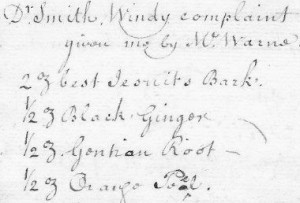 Dr. Smith, Windy complaint
given me by Mr. Warne
2 ʒ best Jesuits Bark.
1/2 ʒ Black Ginger
1/2 ʒ Gentian Root –
1/2 ʒ Orange Peel.